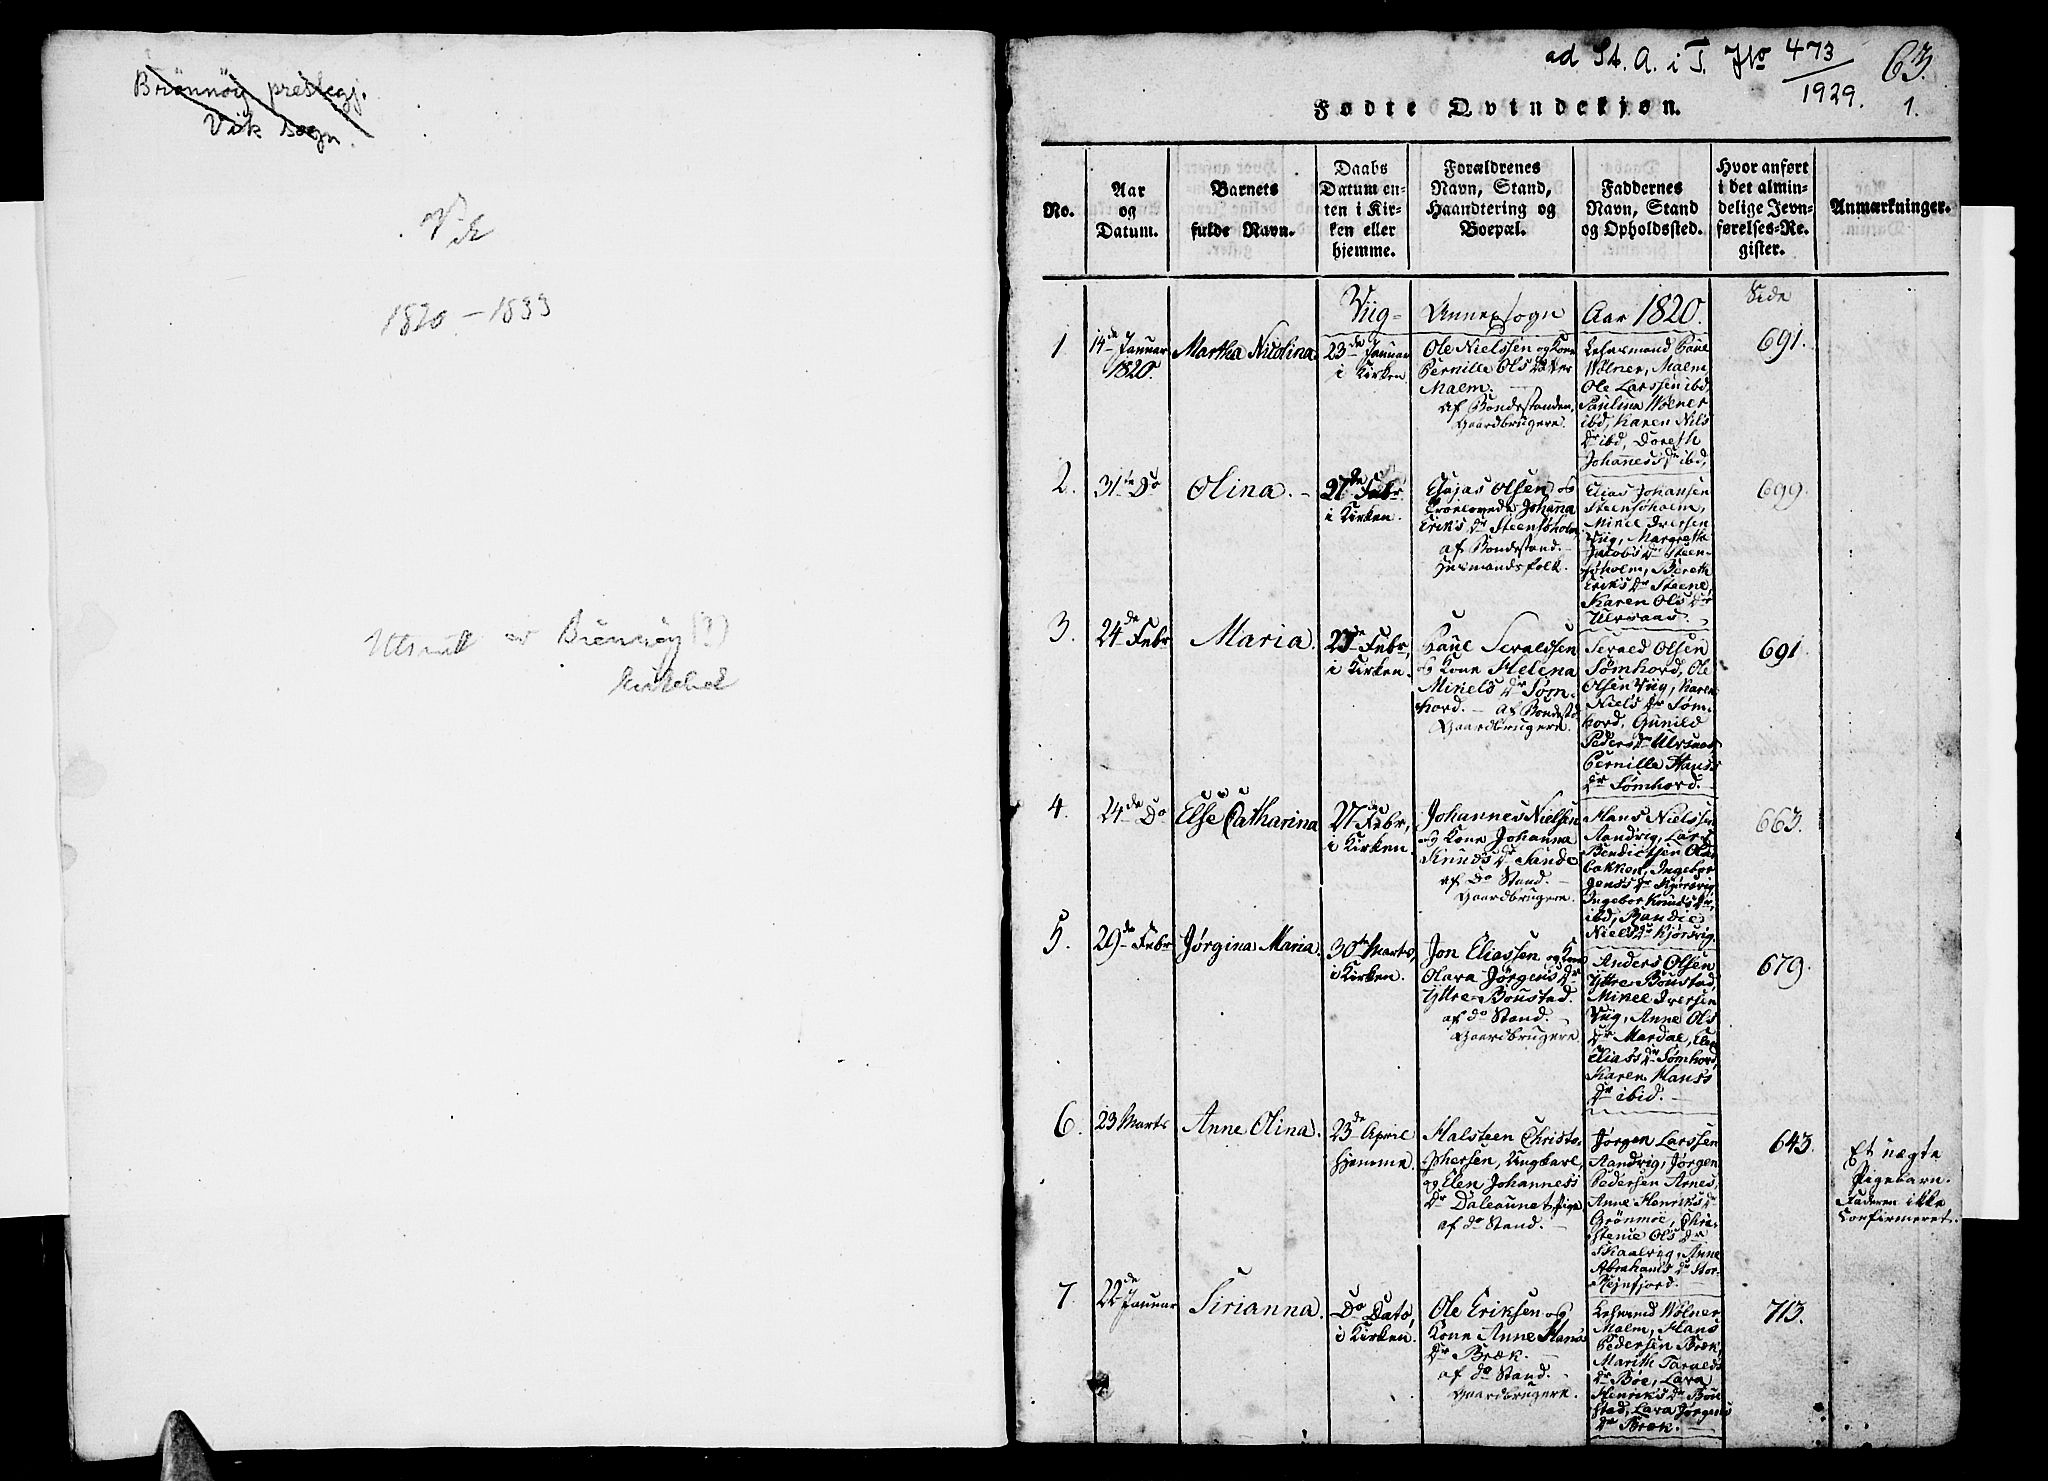 Brönnöy prestegj.
Vik sogn.
Vik
1820 - 1833
Utsnitt av Brønnøy (?)
ad St. A. i T. No 473/1929.
63.
1.
Fødte Qvindekjøn.
No.
Aar
og
Datum.
Barnets
fulde Navn.
Daabs
Datum en-
ten i Kir-
ken eller
hjemme.
Forældrenes
Navn, Stand,
Haandtering og
Boepæl.
Faddernes
Navn, Stand
og Opholdssted.
Hvor anført
i det almin-
delige Jevn-
førelses-Re-
gister.
Anmærkninger.
Viig- Annexsogn Aar 1820.
Side
1
14de Januar
1820.
Martha Nicolina
23de Januar
i Kirken
Ole Nielssen og Kone
Pernille Ols Dter
Malm.
af Bondestanden,
Gaardbrugere.
Lehnsmand Poul
Wolner, Malm,
Ole Larssen ibd,
Paulina Wolner
ibd, Karen Nils
Dr ibd, Doreth
Johanness Dr ibd,
691.
2.
31te Do
Olina.
27de Febr.
i Kirken.
Esajas Olsen og
Trolovede Johanna
Eriks Dr Steensøholm,
af Bondestand.
Huusmandsfolk.
Elias Johansen
Steensøholm,
Mikel Iversen
Viig, Margreth
Jacobs Dr Steen-
søholm, Bereth
Eriks Dr Steene,
Karen Ols Dr
Ulvsaas.
699.
3.
24de Febr
Maria.
27de Febr,
i Kirken.
Poul Sivaldsen
og Kone Helena
Mikels Dr Søm-
hord. af Bondestd
Gaardbrugere.
Sivald Olsen
Sømhord, Ole
Olsen Viig, Karen
Niels Dr Søm-
hord, Gunild
Peders Dr Ulvsaas
Pernille Hanss
Dr Sømhord.
691.
4.
24de Do
Else Catharina
27de Febr,
i Kirken.
Johannes Nielsen
og Kone Johanna
Knuds Dr Sande
af Do Stand.
Gaardbrugere.
Hans Nielssen
Aandvig, Lars
Bendictsen Olds
bakken, Ingebor
Jenss Dr Kjørsvig,
Ingebor Knuds Dr,
ibd, Randie
Niels Dr Kjørsvig.
663.
5.
29de Febr
Jørgina Maria.
30te Marts,
i Kirken.
Jon Eliassen og Kone
Olava Jørgens Dr
Yttre Boustad.
af do Stand.
Gaardbrugere.
Anders Olsen
Yttre Boustad,
Mikel Iversen
Viig, Anne Ols
Dr Mardal, Elen
Eliass Dr Sømhord,
Karen Hanss
Dr ibid.
679.
6.
23 Marts
Anne Olina.
23de April
hjemme.
Halsteen Christo-
phersen, Ungkarl,
og Elen Johanness
Dr Daleaunet Pige
af do Stand.
Jørgen Larssen
Aandvig, Jørgen
Pedersen Arnes,
Anne Henriks Dr
Grønmoe, Chri-
stenie Ols Dr
Skaalvig, Anne
Abrahams Dr Stor-
Hejnfjord.
643.
Et uægte
Pigebarn.
Faderen ikke
Confirmeret.
7.
22de Januar
Sirianna.
Do Dato,
i Kirken.
Ole Eriksen og
Kone Anne Hans
Dr Bræk.
af do Stand.
Gaardbrugere.
Lehnsmd Wolner
Malm, Hans
Pedersen Bræk,
Marith Taralds
Dr Boe, Lava
Henriks Dr Bou-
stad, Lava Jørgens
Dr Bræk.
713.